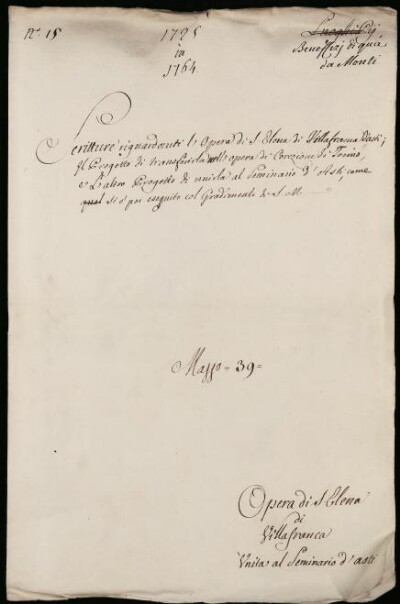 N.º 15
1725
in
1764.
Luoghi Pij
Beneffizj di qua
da Monti
Scritture riguardanti l'Opera di S. Elena di Villafranca d'Asti;
Il Progetto di transferirla all'opera di Torino,
e l'altro Progetto di unirla al Seminario d'Asti, come
si è poi eseguito col Gradimento di S. M.
Mazzo = 39 =
Opera di S. Elena
di
Villafranca
Unita al Seminario d'asti